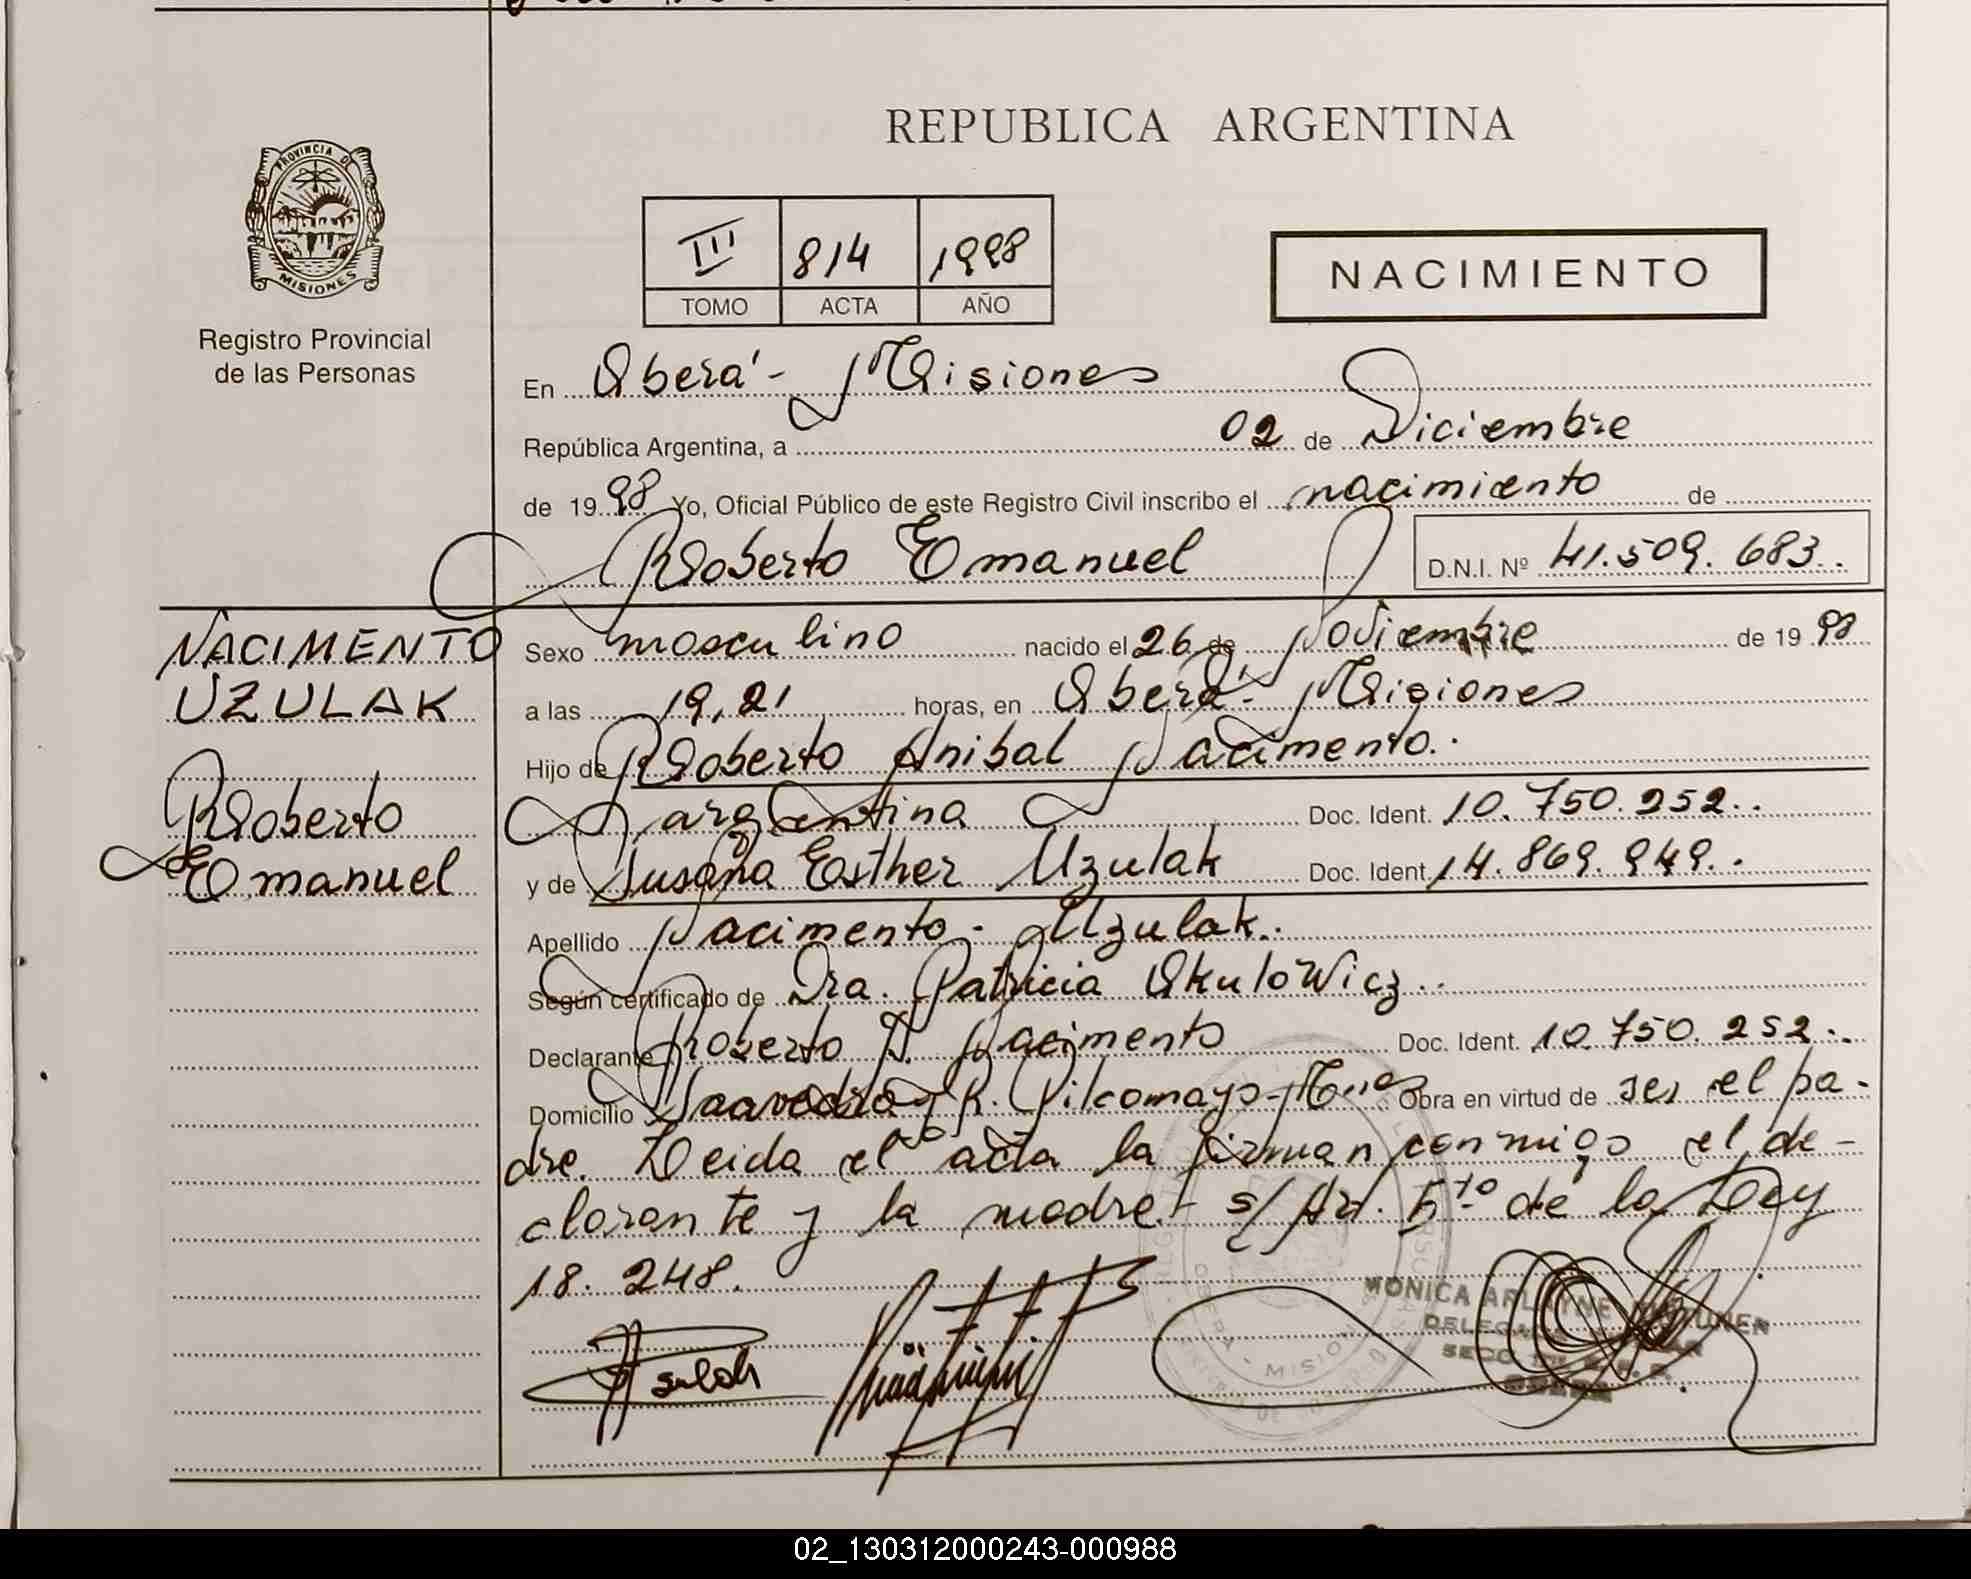 REPUBLICA ARGENTINA
PROVINCIA DE
MISIONES
Registro Provincial
de las Personas
III 814 1998
TOMO ACTA AÑO
NACIMIENTO
En Oberá - Misiones
República Argentina, a 02 de Diciembre
de 1998 Yo, Oficial Público de este Registro Civil inscribo el nacimiento de
Roberto Emanuel D.N.I. Nº 41.509.683..
NACIMENTO
UZULAK
Roberto
Emanuel
Sexo masculino nacido el 26 de Noviembre de 1998
a las 19,21 horas, en Oberá - Misiones
Hijo de Roberto Anibal Nacimento..
argentina Doc. Ident. 10.750.252..
y de Susana Esther Uzulak Doc. Ident. 14.869.949..
Apellido Nacimento - Uzulak..
Según certificado de Dra. Patricia Okulowicz..
Declarante Roberto A. Nacimento Doc. Ident. 10.750.252..
Domicilio Saavedra y R. Pilcomayo - Obra en virtud de ser el pa-
dre. Leida el acta la firman conmigo el de-
clarante y la madre.- s/ Art. 5to de la Ley
18.248.
MONICA
DELEGADA
OBERA
MISIO
02_130312000243-000988